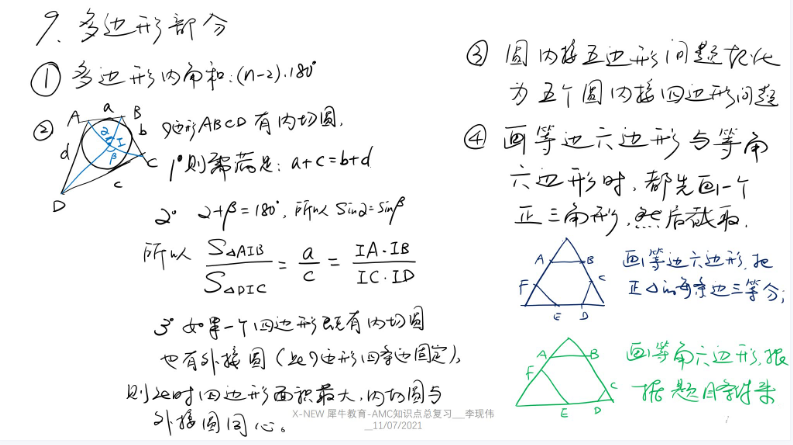 9、多边形部分
① 多边形内角和:(n-2)·180°
② A a B b C c D d I α β
四边形ABCD有内切圆,
1° 则需满足: a+c=b+d
2° α+β=180°, 所以 Sinα=Sinβ
所以 S△AIB/S△DIC = a/c = IA·IB/IC·ID
3° 如果一个四边形既有内切圆
也有外接圆(此四边形四条边固定),
则此时四边形面积最大,内切圆与
外接圆同心。
③ 圆内接五边形问题转化
为五个圆内接四边形问题
④ 画等边六边形与等角
六边形时,都先画一个
正三角形,然后截取.
A B C D E F
画等边六边形,把
正△的每条边三等分;
A B C D E F
画等角六边形,根
据题目条件来
X-NEW 犀牛教育-AMC知识点总复习__李现伟
__11/07/2021